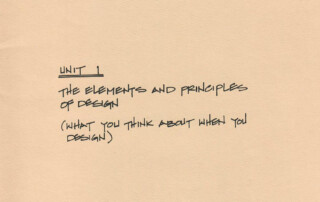 UNIT 1
THE ELEMENTS AND PRINCIPLES
OF DESIGN
(WHAT YOU THINK ABOUT WHEN YOU
DESIGN)